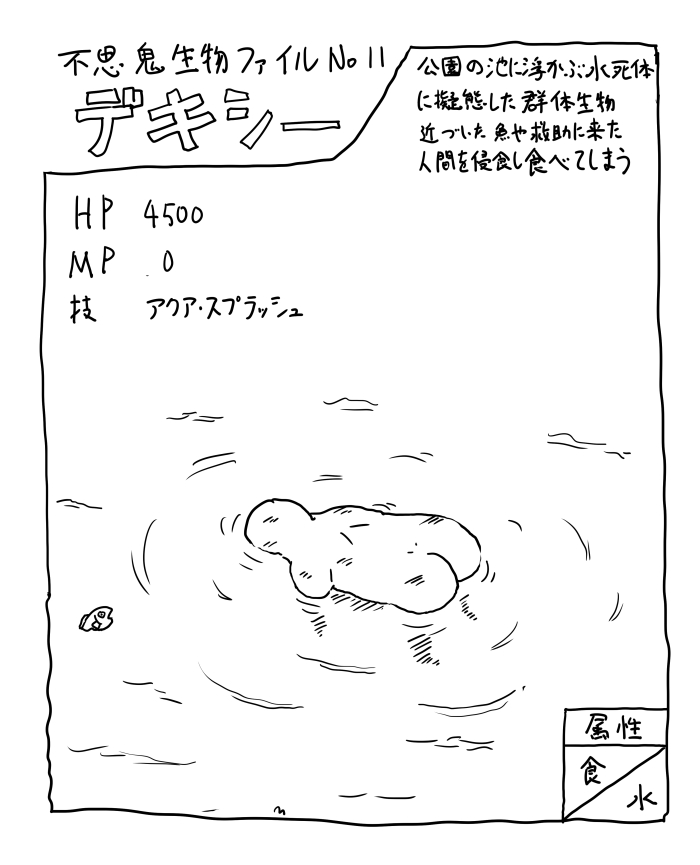 不思鬼生物ファイルNo11
デキシー
公園の池に浮かぶ水死体
に擬態した群体生物
近づいた魚や救助に来た
人間を侵食し食べてしまう
HP 4500
MP 0
技 アクア・スプラッシュ
属性
食
水